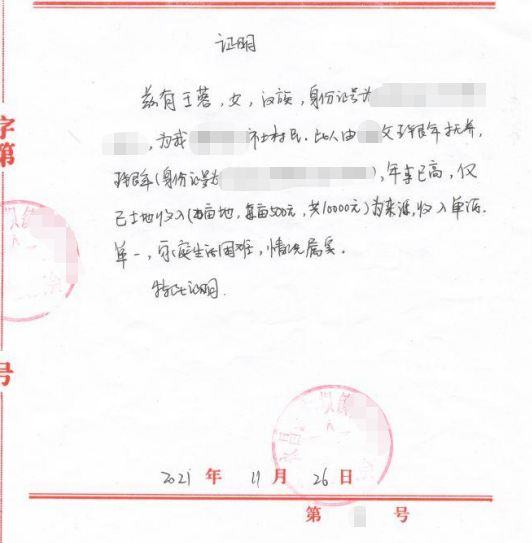 证明
兹有王蓉，女，汉族，身份证号为
，为我 村民。此人由 父 年抚养，
年（身份证号为 ），年事已高，仅
已土地收入（ 亩地，每亩500元，共10000元）为来源，收入单源.
单一，家庭生活困难，情况属实.
特此证明.
2021 年 11 月 26 日
第 号
字
第
号